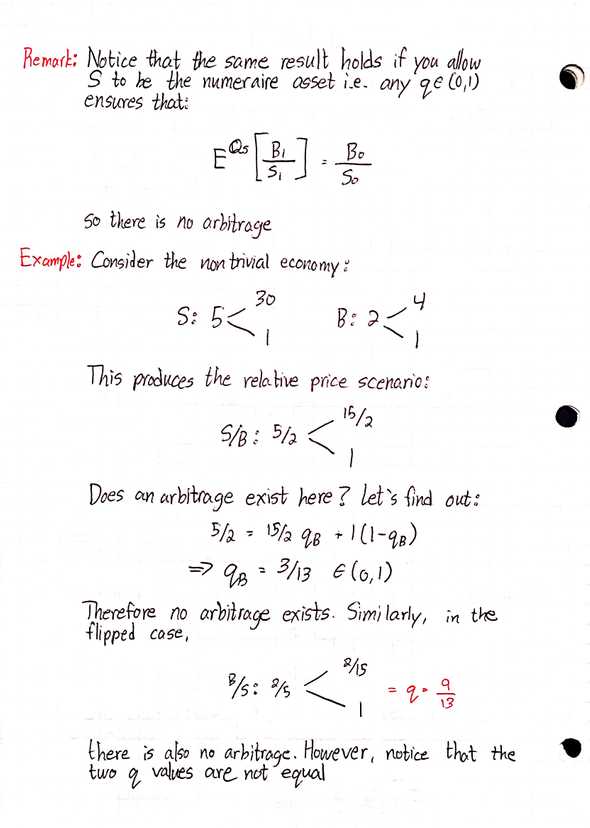 Remark: Notice that the same result holds if you allow
S to be the numeraire asset i.e. any q ∈ (0,1)
ensures that:
E^{Qs} [ B₁/S₁ ] = B₀/S₀
so there is no arbitrage
Example: Consider the non trivial economy:
S: 5 < 30 1 B: 2 < 4 1
This produces the relative price scenario:
S/B: 5/2 < 15/2 1
Does an arbitrage exist here? Let's find out:
5/2 = 15/2 q_B + 1(1-q_B)
=> q_B = 3/13 ∈ (0,1)
Therefore no arbitrage exists. Similarly, in the
flipped case,
B/S: 2/5 < 2/15 1 = q = 9/13
there is also no arbitrage. However, notice that the
two q values are not equal